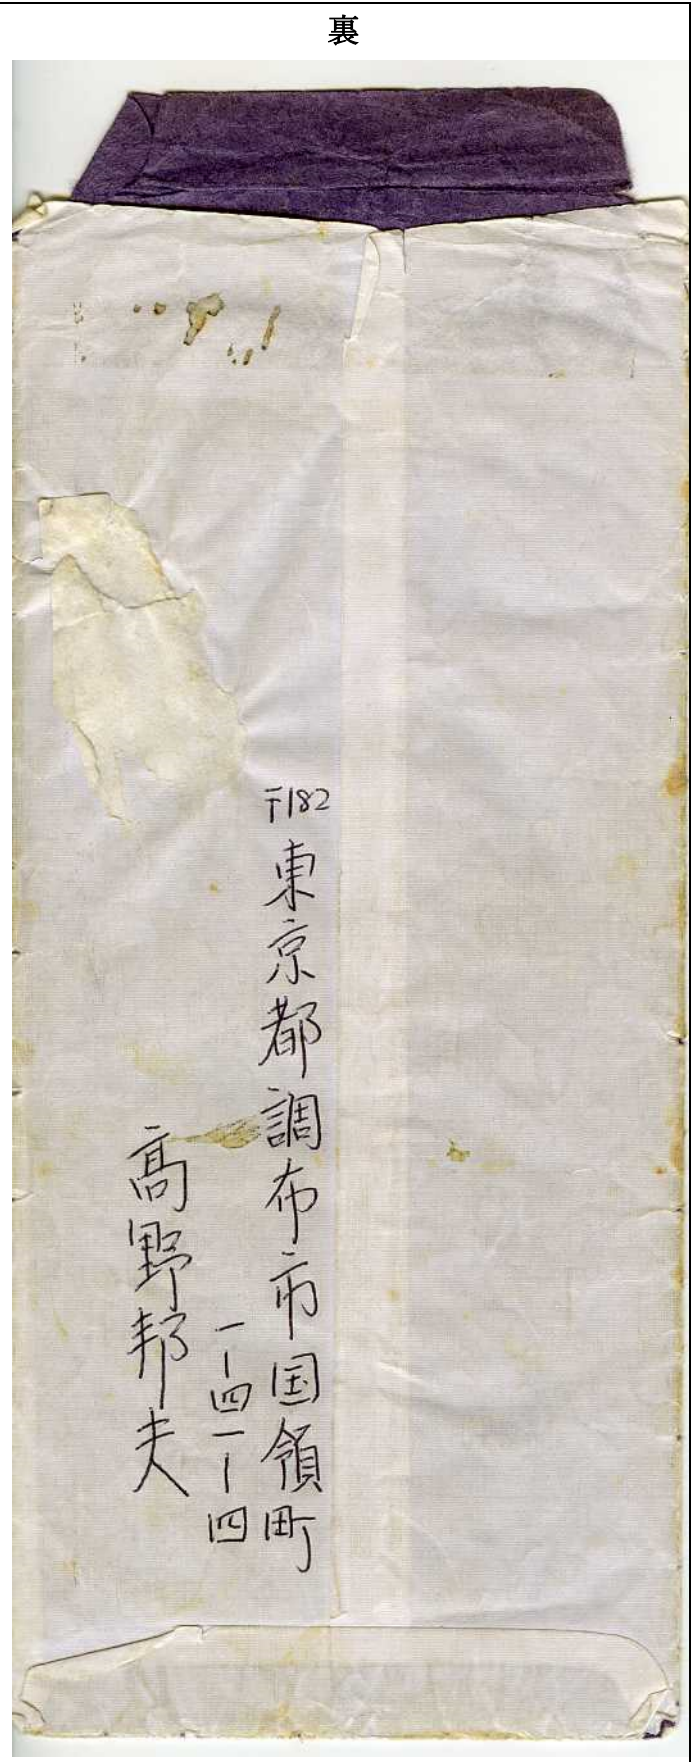 裏
〒182
東京都調布市国領町
一-四一-四
髙野邦夫